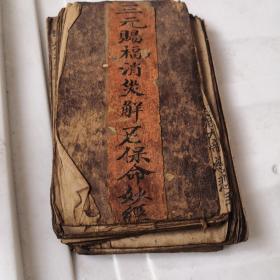 三元賜福消災解厄保命妙經